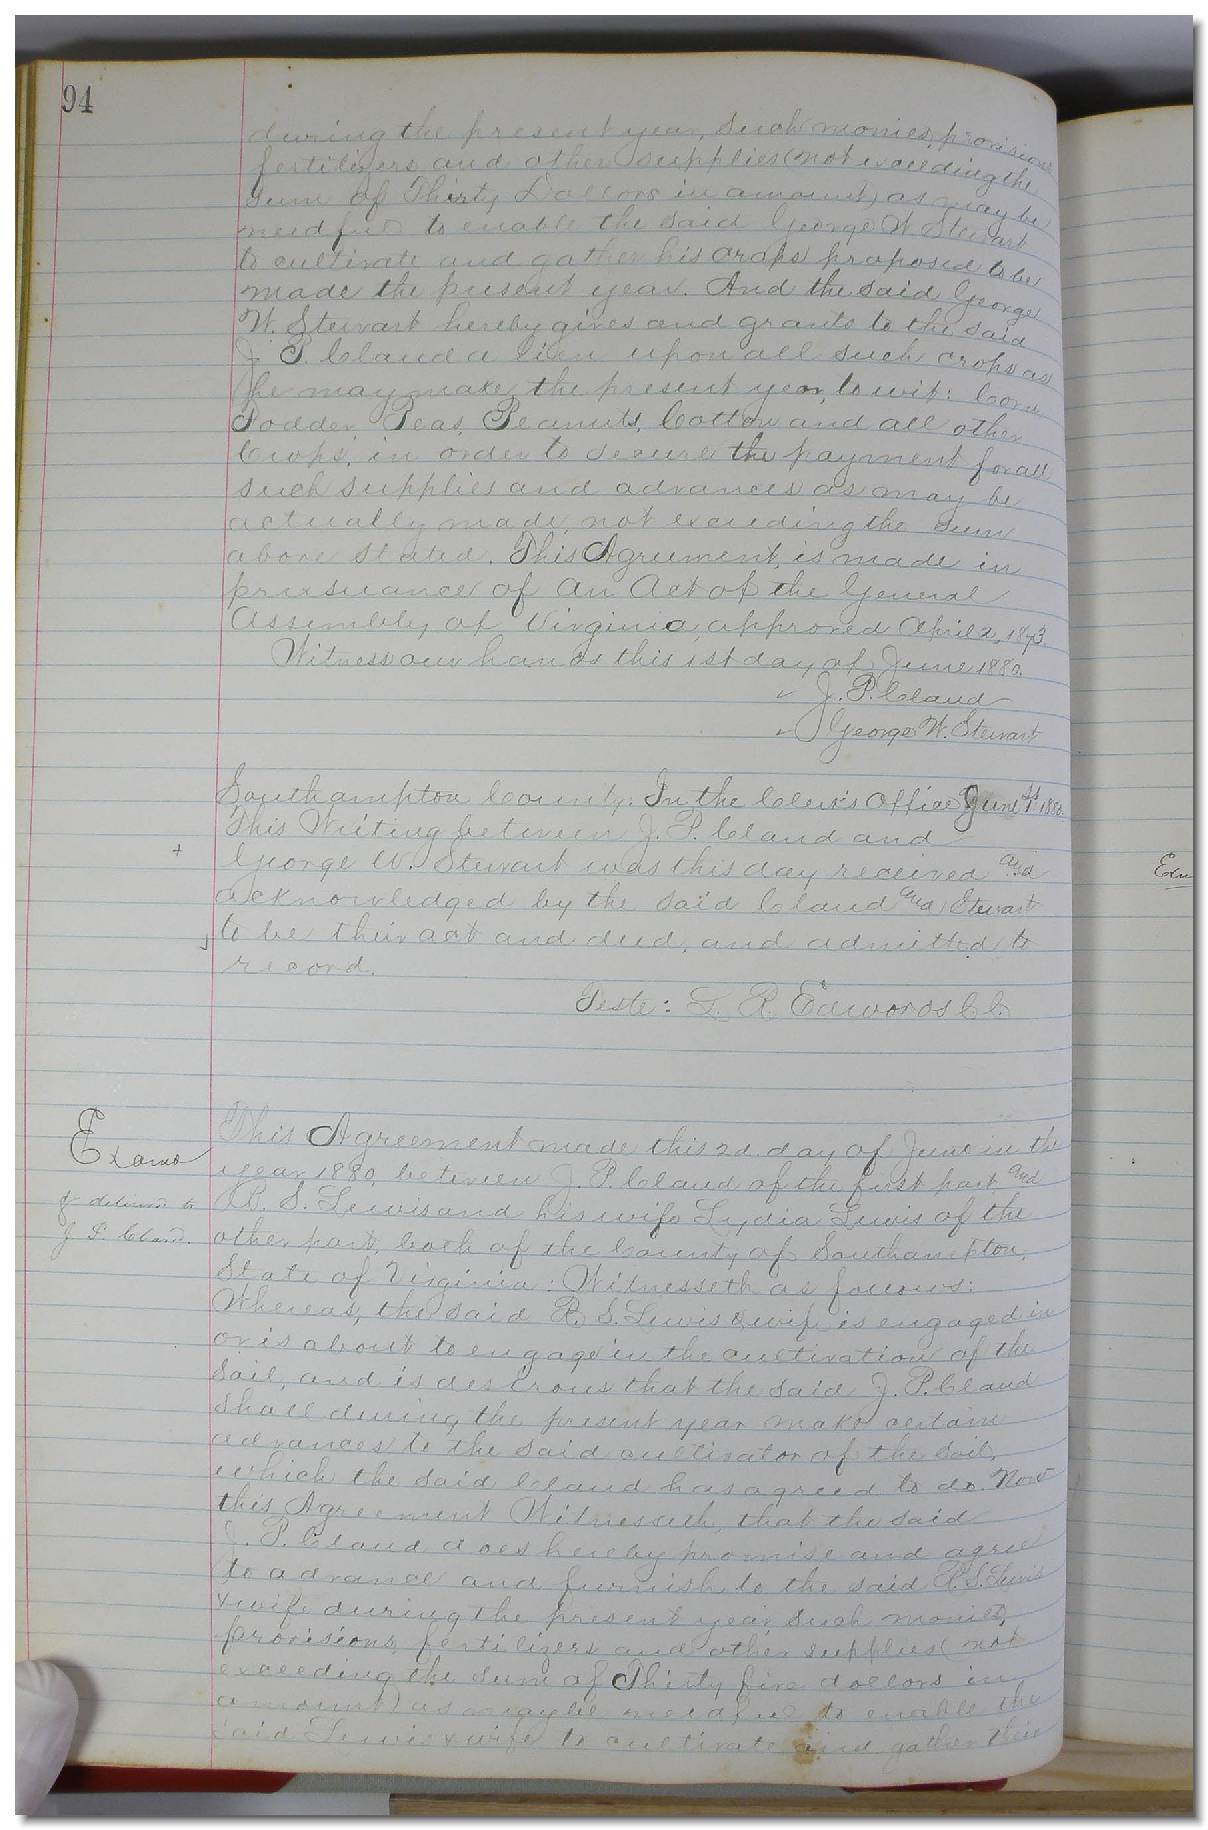 94
during the present year, such monies, provisions
fertilizers and other supplies (not exceeding the
sum of Thirty Dollars in amount) as may be
needful to enable the said George W Stewart
to cultivate and gather his crops proposed to be
made the present year. And the said George
W. Stewart hereby gives and grants to the said
J. P. Claud a lien upon all such crops as
he may make the present year, to wit: Corn
Fodder, Peas, Peanuts, Cotton and all other
Crops, in order to secure the payment for all
such supplies and advances as may be
actually made, not exceeding the sum
above stated. This Agreement, is made in
pursuance of an Act of the General
Assembly of Virginia, approved April 2, 1873.
Witness our hands this 1st day of June 1880.
J. P. Claud
George W. Stewart
Southampton County: In the Clerk's Office June 1st 1880.
This Writing between J. P. Claud and
+
George W. Stewart was this day received and
acknowledged by the said Claud and Stewart
to be their act and deed, and admitted to
record.
Teste: L. R. Edwards C.C.
Edw
This Agreement made this 2d day of June in the
Examd
year 1880, between J. P. Claud of the first part, and
& delivered to
R. S. Lewis and his wife Lydia Lewis of the
J P. Claud.
other part, both of the County of Southampton,
State of Virginia: Witnesseth as follows:
Whereas, the said R. S. Lewis & wife is engaged in
or is about to engage in the cultivation of the
Soil, and is desirous that the said J. P. Claud
shall during the present year make certain
advances to the said cultivator of the soil,
which the said Claud has agreed to do. Now
this Agreement Witnesseth, that the said
J. P. Claud does hereby promise and agree
to advance and furnish to the said R. S. Lewis
& wife during the present year, such monies,
provisions, fertilizers and other supplies (not
exceeding the sum of Thirty five dollars in
amount) as may be needful to enable the
said Lewis & wife to cultivate and gather their